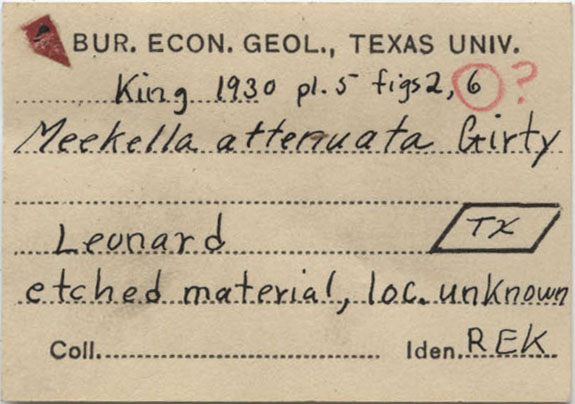 BUR. ECON. GEOL., TEXAS UNIV.
King 1930 pl. 5 figs 2, 6 ?
Meekella attenuata Girty
Leonard TX
etched material, loc. unknown
Coll. Iden. REK